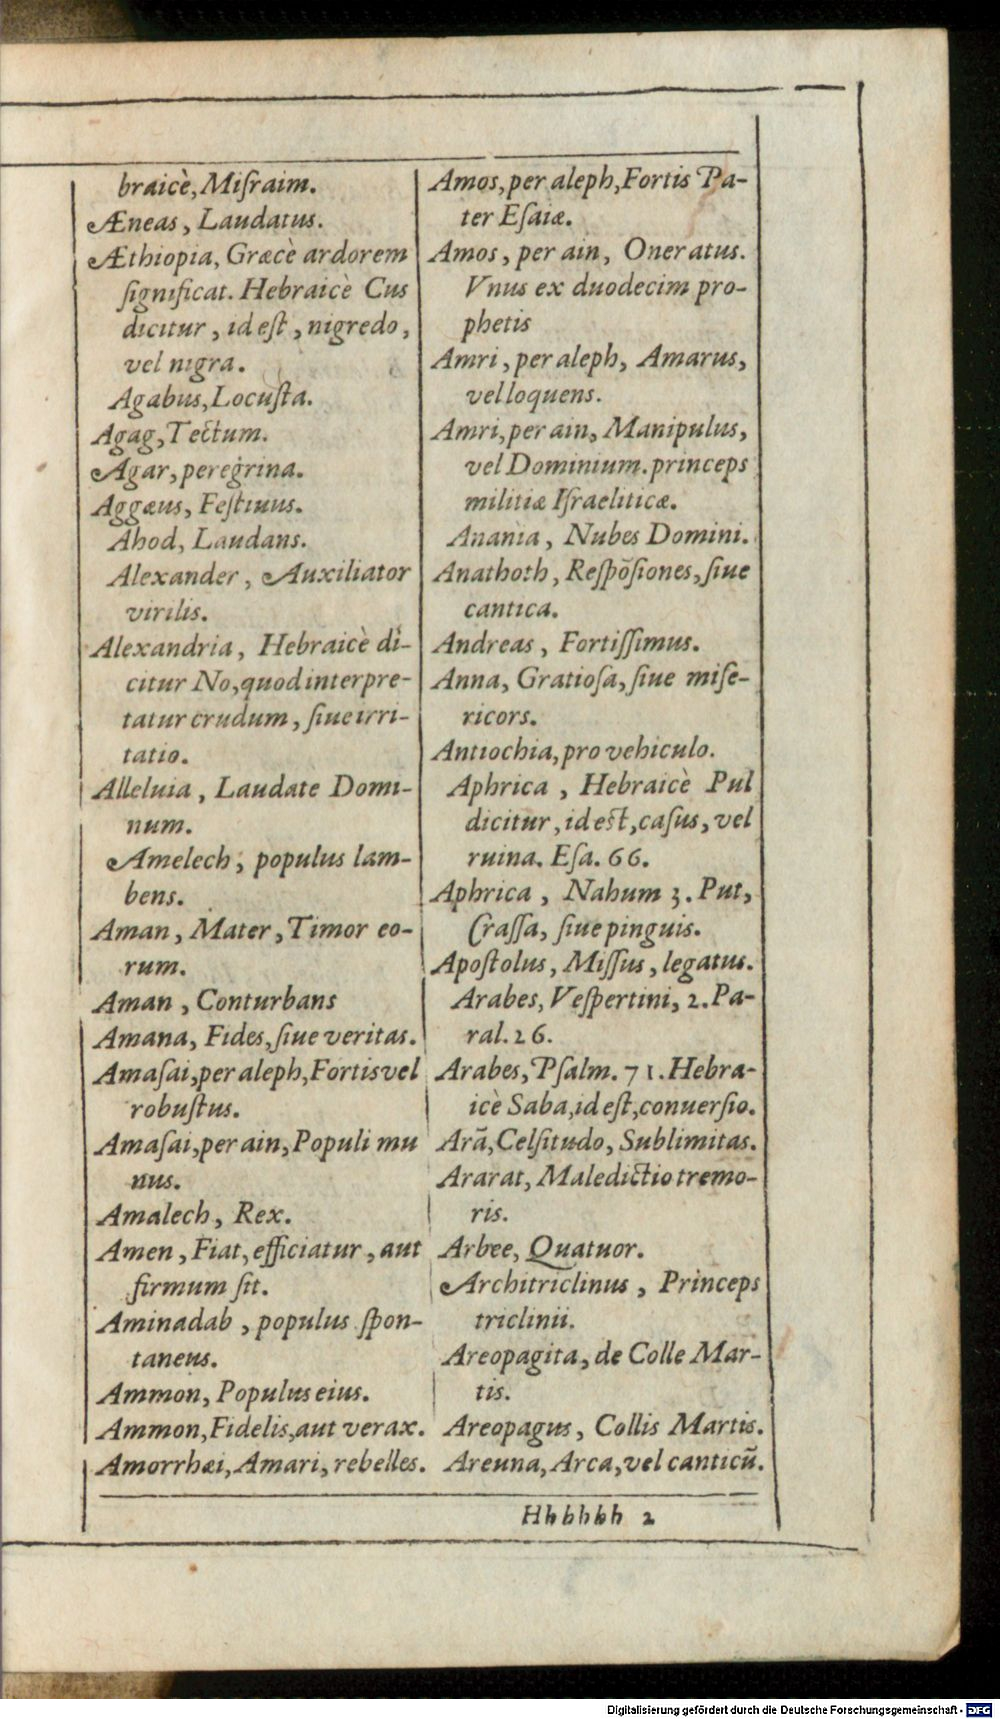 braicè, Miſraim.
Æneas, Laudatus.
Æthiopia, Græcè ardorem
ſignificat. Hebraicè Cus
dicitur, id eſt, nigredo,
vel nigra.
Agabus, Locuſta.
Agag, Tectum.
Agar, peregrina.
Aggæus, Feſtiuus.
Ahod, Laudans.
Alexander, Auxiliator
virilis.
Alexandria, Hebraicè di-
citur No, quod interpre-
tatur crudum, ſiue irri-
tatio.
Alleluia, Laudate Domi-
num.
Amelech, populus lam-
bens.
Aman, Mater, Timor eo-
rum.
Aman, Conturbans
Amana, Fides, ſiue veritas.
Amaſai, per aleph, Fortis vel
robuſtus.
Amaſai, per ain, Populi mu
nus.
Amalech, Rex.
Amen, Fiat, efficiatur, aut
firmum ſit.
Aminadab, populus ſpon-
taneus.
Ammon, Populus eius.
Ammon, Fidelis, aut verax.
Amorrhæi, Amari, rebelles.
Amos, per aleph, Fortis Pa-
ter Eſaiæ.
Amos, per ain, Oneratus.
Vnus ex duodecim pro-
phetis
Amri, per aleph, Amarus,
vel loquens.
Amri, per ain, Manipulus,
vel Dominium. princeps
militiæ Iſraeliticæ.
Anania, Nubes Domini.
Anathoth, Reſpõſiones, ſiue
cantica.
Andreas, Fortiſſimus.
Anna, Gratioſa, ſiue miſe-
ricors.
Antiochia, pro vehiculo.
Aphrica, Hebraicè Pul
dicitur, id eſt, caſus, vel
ruina. Eſa. 66.
Aphrica, Nahum 3. Put,
Craſſa, ſiue pinguis.
Apoſtolus, Miſſus, legatus.
Arabes, Veſpertini, 2. Pa-
ral. 26.
Arabes, Pſalm. 71. Hebra-
icè Saba, id eſt, conuerſio.
Arã, Celſitudo, Sublimitas.
Ararat, Maledictio tremo-
ris.
Arbee, Quatuor.
Architriclinus, Princeps
triclinii.
Areopagita, de Colle Mar-
tis.
Areopagus, Collis Martis.
Areuna, Arca, vel canticũ.
Hhhhhh 2
Digitalisierung gefördert durch die Deutsche Forschungsgemeinschaft - DFG